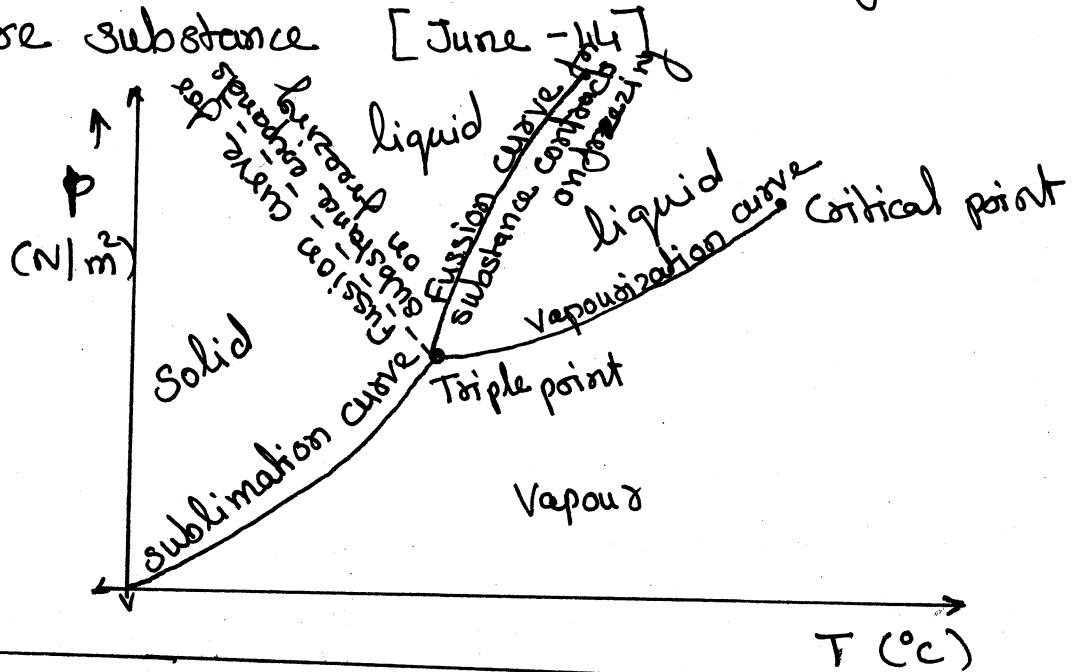 re substance [June - 14]
p
(N/m²)
liquid
Fussion curve for
substance expands
on freezing
Fussion curve for
substance contracts
on freezing
liquid
Vapourization curve
Critical point
Solid
Sublimation curve
Triple point
Vapour
T (°c)